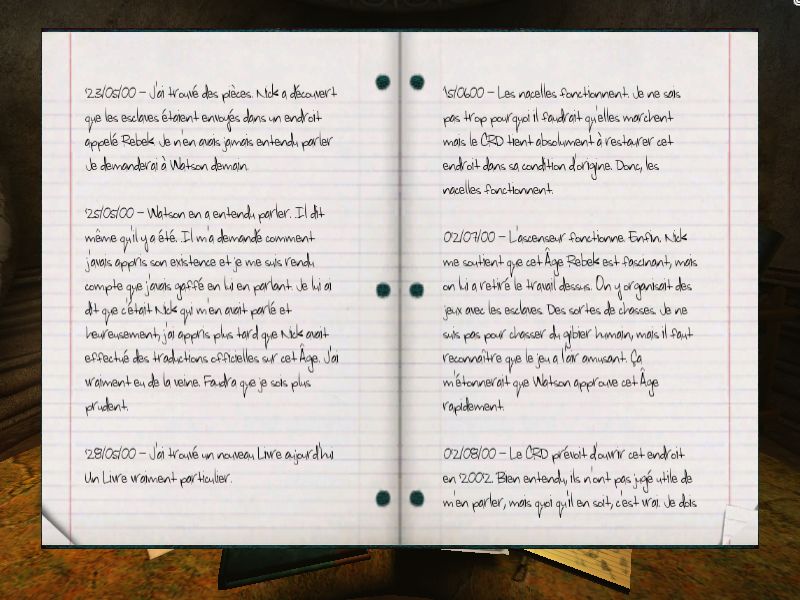 23/05/00 – J'ai trouvé des pièces. Nick a découvert
que les esclaves étaient envoyés dans un endroit
appelé Rebek. Je n'en avais jamais entendu parler
Je demanderai à Watson demain.
25/05/00 – Watson en a entendu parler. Il dit
même qu'il y a été. Il m'a demandé comment
j'avais appris son existence et je me suis rendu
compte que j'avais gaffé en lui en parlant. Je lui ai
dit que c'était Nick qui m'en avait parlé et
heureusement, j'ai appris plus tard que Nick avait
effectué des traductions officielles sur cet Âge. J'ai
vraiment eu de la veine. Faudra que je sois plus
prudent.
28/05/00 – J'ai trouvé un nouveau Livre aujourd'hui
Un Livre vraiment particulier.
15/0600 – Les nacelles fonctionnent. Je ne sais
pas trop pourquoi il faudrait qu'elles marchent
mais le CRD tient absolument à restaurer cet
endroit dans sa condition d'origine. Donc, les
nacelles fonctionnent.
02/07/00 – L'ascenseur fonctionne. Enfin. Nick
me soutient que cet Âge Rebek est fascinant, mais
on lui a retiré le travail dessus. On y organisait des
jeux avec les esclaves. Des sortes de chasses. Je ne
suis pas pour chasser du gibier humain, mais il faut
reconnaître que le jeu a l'air amusant. Ça
m'étonnerait que Watson approuve cet Âge
rapidement.
02/08/00 – Le CRD prévoit d'ouvrir cet endroit
en 2002. Bien entendu, ils n'ont pas jugé utile de
m'en parler, mais quoi qu'il en soit, c'est vrai. Je dois